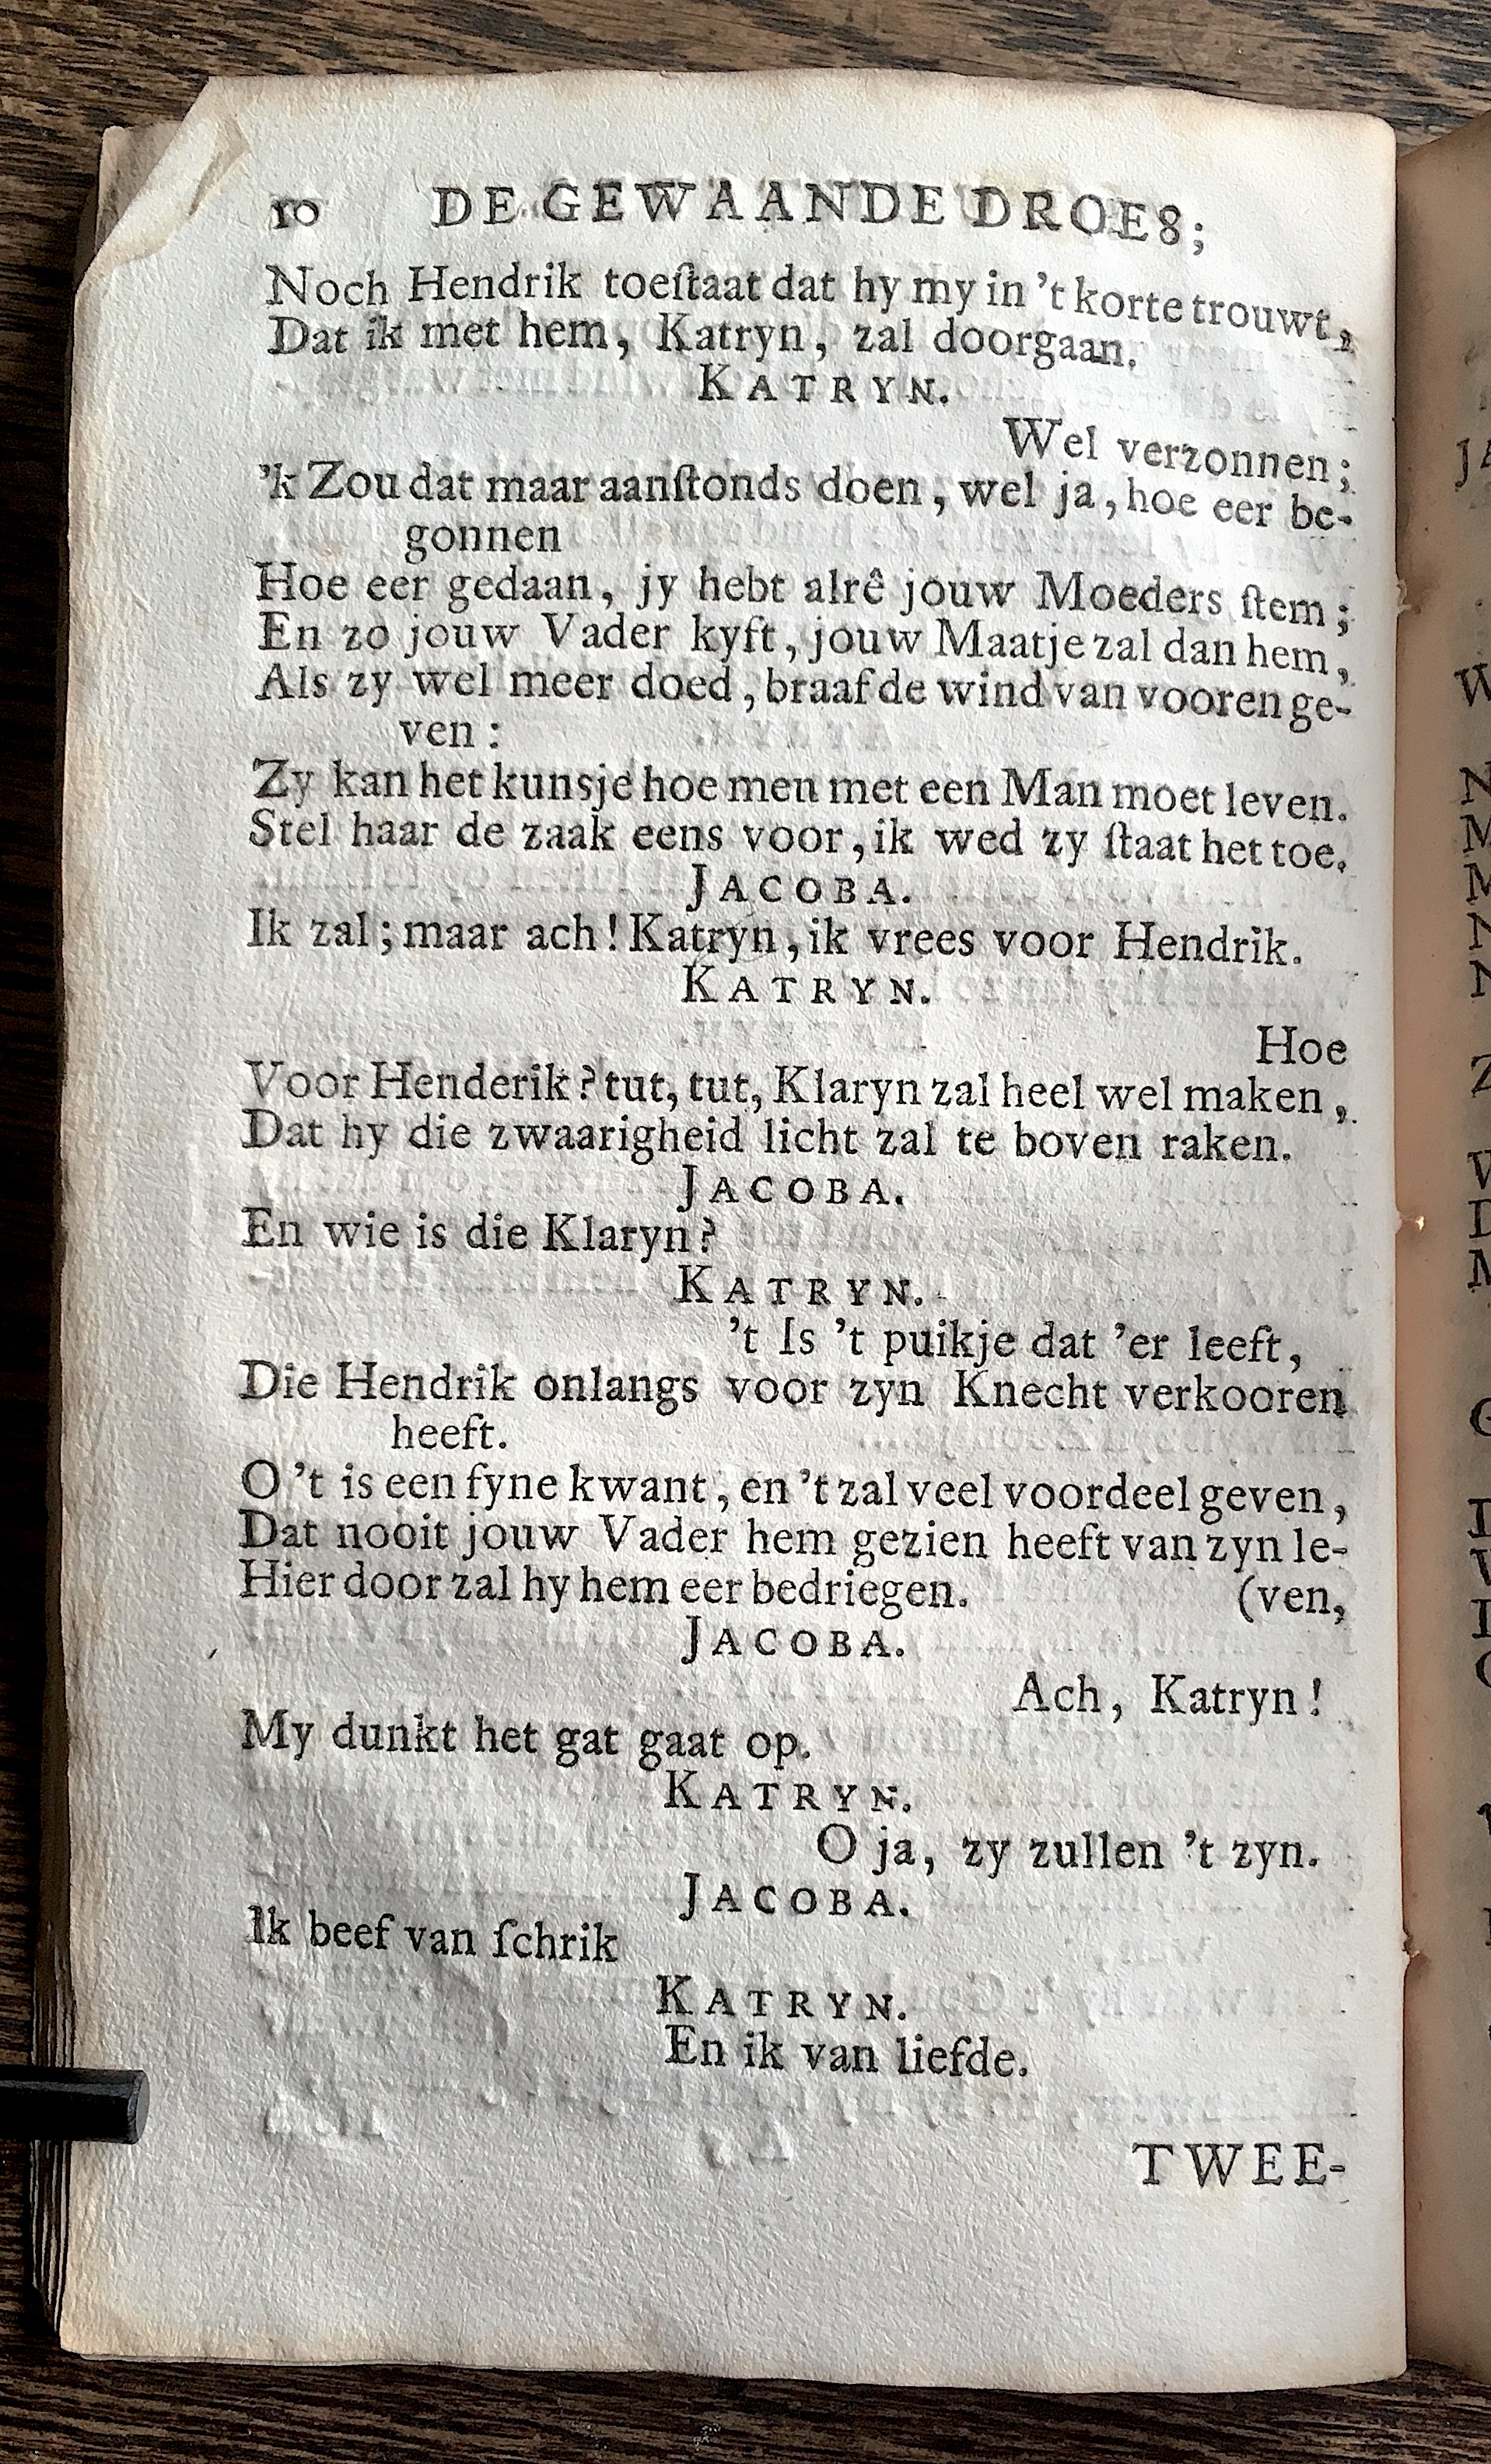 10 DE GEWAANDE DROES;
Noch Hendrik toeſtaat dat hy my in 't korte trouwt,
Dat ik met hem, Katryn, zal doorgaan.
KATRYN.
Wel verzonnen;
'k Zou dat maar aanſtonds doen, wel ja, hoe eer be-
gonnen
Hoe eer gedaan, jy hebt alrê jouw Moeders ſtem;
En zo jouw Vader kyft, jouw Maatje zal dan hem,
Als zy wel meer doed, braaf de wind van vooren ge-
ven:
Zy kan het kunsje hoe men met een Man moet leven.
Stel haar de zaak eens voor, ik wed zy ſtaat het toe.
JACOBA.
Ik zal; maar ach! Katryn, ik vrees voor Hendrik.
KATRYN.
Hoe
Voor Henderik? tut, tut, Klaryn zal heel wel maken,
Dat hy die zwaarigheid licht zal te boven raken.
JACOBA.
En wie is die Klaryn?
KATRYN.
't Is 't puikje dat 'er leeft,
Die Hendrik onlangs voor zyn Knecht verkooren
heeft.
O 't is een fyne kwant, en 't zal veel voordeel geven,
Dat nooit jouw Vader hem gezien heeft van zyn le-
Hier door zal hy hem eer bedriegen. (ven,
JACOBA.
Ach, Katryn!
My dunkt het gat gaat op.
KATRYN.
O ja, zy zullen 't zyn.
JACOBA.
Ik beef van ſchrik
KATRYN.
En ik van liefde.
TWEE-